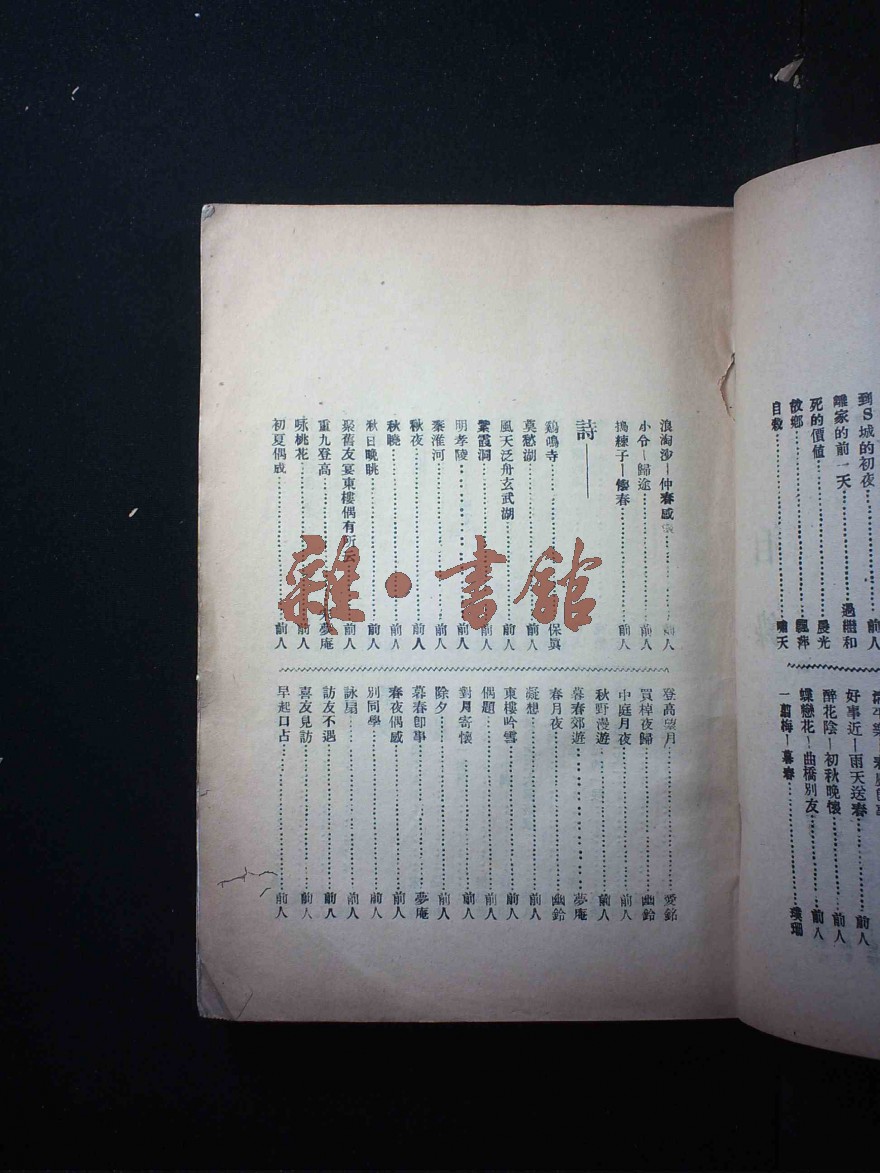 到S城的初夜……前人
離家的前一天……過繼和
死的價值……晨光
故鄉……飄萍
自救……嘯天
好事近—雨天送春……前人
醉花陰—初秋晚懷……前人
蝶戀花—曲橋別友……前人
一翦梅—暮春……璞珊
浪淘沙—仲春感……前人
小令—歸途……前人
搗練子—懷春……前人
詩——
鷄鳴寺……保眞
莫愁湖……前人
風天泛舟玄武湖……前人
紫霞洞……前人
明孝陵……前人
秦淮河……前人
秋夜……前人
秋曉……前人
秋日晚眺……前人
聚舊友宴東樓偶有所……前人
重九登高……夢庵
咏桃花……前人
初夏偶感……前人
登高望月……愛銘
買棹夜歸……幽鈴
中庭月夜……前人
秋野漫遊……前人
暮春郊遊……夢庵
春月夜……幽鈴
凝想……前人
東樓吟雪……前人
偶題……前人
對月寄懷……前人
除夕……前人
暮春卽事……夢庵
春夜偶感……前人
別同學……前人
詠扇……前人
訪友不遇……前人
喜友見訪……前人
早起口占……前人
雜·書館